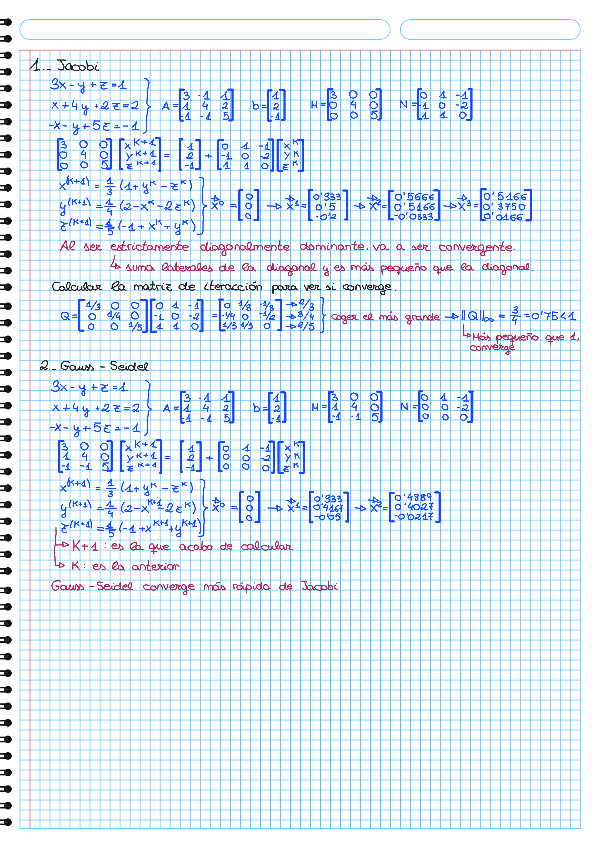 1._ Jacobi
3x - y + z = 1
x + 4y + 2z = 2 } A = [3 -1 1; 1 4 2; -1 -1 5] b = [1; 2; -1] M = [3 0 0; 0 4 0; 0 0 5] N = [0 1 -1; -1 0 -2; 1 1 0]
-x - y + 5z = -1
[3 0 0; 0 4 0; 0 0 5] [x^K+1; y^K+1; z^K+1] = [1; 2; -1] + [0 1 -1; -1 0 -2; 1 1 0] [x^K; y^K; z^K]
x^(K+1) = 1/3 (1 + y^K - z^K)
y^(K+1) = 1/4 (2 - x^K - 2z^K) } x^0 = [0; 0; 0] → x^1 = [0'333; 0'5; -0'2] → x^2 = [0'5666; 0'5166; -0'0333] → x^3 = [0'5166; 0'3750; 0'0166]
z^(K+1) = 1/5 (-1 + x^K + y^K)
Al ser estrictamente diagonalmente dominante, va a ser convergente.
↳ suma laterales de la diagonal y es más pequeño que la diagonal.
Calcular la matriz de iteracción para ver si converge.
Q = [1/3 0 0; 0 1/4 0; 0 0 1/5] [0 1 -1; -1 0 -2; 1 1 0] = [0 1/3 -1/3; -1/4 0 -1/2; 1/5 1/5 0] → 2/3 → 3/4 → 2/5 } coger el más grande → ||Q||∞ = 3/4 = 0'75 < 1
↳ Más pequeño que 1,
converge
2._ Gauss - Seidel
3x - y + z = 1
x + 4y + 2z = 2 } A = [3 -1 1; 1 4 2; -1 -1 5] b = [1; 2; -1] M = [3 0 0; 1 4 0; -1 -1 5] N = [0 1 -1; 0 0 -2; 0 0 0]
-x - y + 5z = -1
[3 0 0; 1 4 0; -1 -1 5] [x^K+1; y^K+1; z^K+1] = [1; 2; -1] + [0 1 -1; 0 0 -2; 0 0 0] [x^K; y^K; z^K]
x^(K+1) = 1/3 (1 + y^K - z^K)
y^(K+1) = 1/4 (2 - x^K+1 - 2z^K) } x^0 = [0; 0; 0] → x^1 = [0'333; 0'4167; -0'05] → x^2 = [0'4889; 0'4027; -0'0217]
z^(K+1) = 1/5 (-1 + x^K+1 + y^K+1)
→ K+1 : es la que acabo de calcular
→ K : es la anterior
Gauss - Seidel converge más rápido de Jacobi